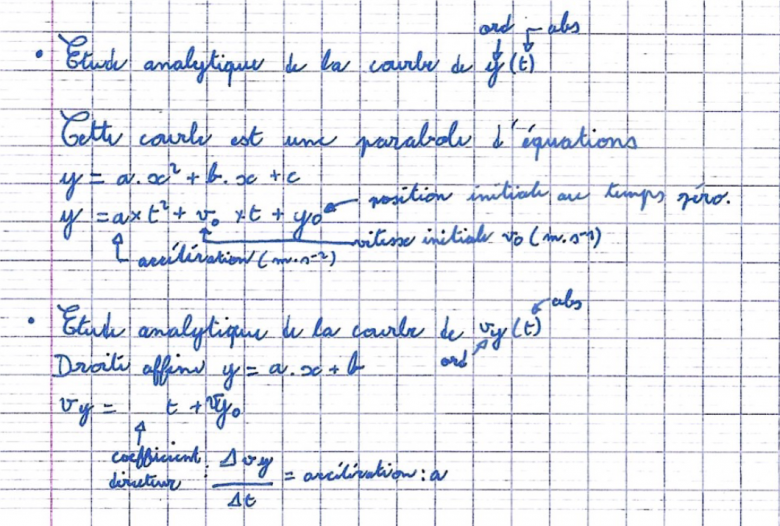 ord abs
• Etude analytique de la courbe de y(t)
Cette courbe est une parabole d'équations
y = a.x² + b.x + c
position initiale au temps zéro.
y = a×t² + v₀ ×t + y₀
vitesse initiale v₀ (m.s⁻¹)
accélération (m.s⁻²)
abs
• Etude analytique de la courbe de vy(t)
ord
Droite affine y = a.x + b
vy = t + vy₀
coefficient directeur : Δvy / Δt = accélération : a